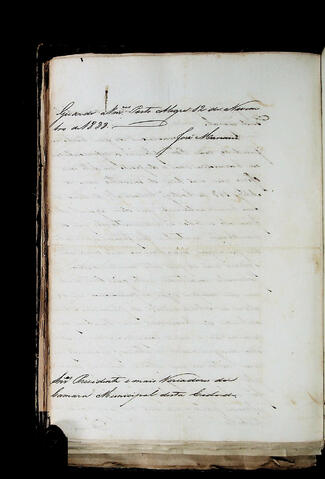 Guarde a V.ᵃˢ Porto Alegre 12 de Novem
bro de 1833.
José Mariani
Snr.ᵉˢ Presidente e mais Vereadores da
Camara Municipal desta Cidade